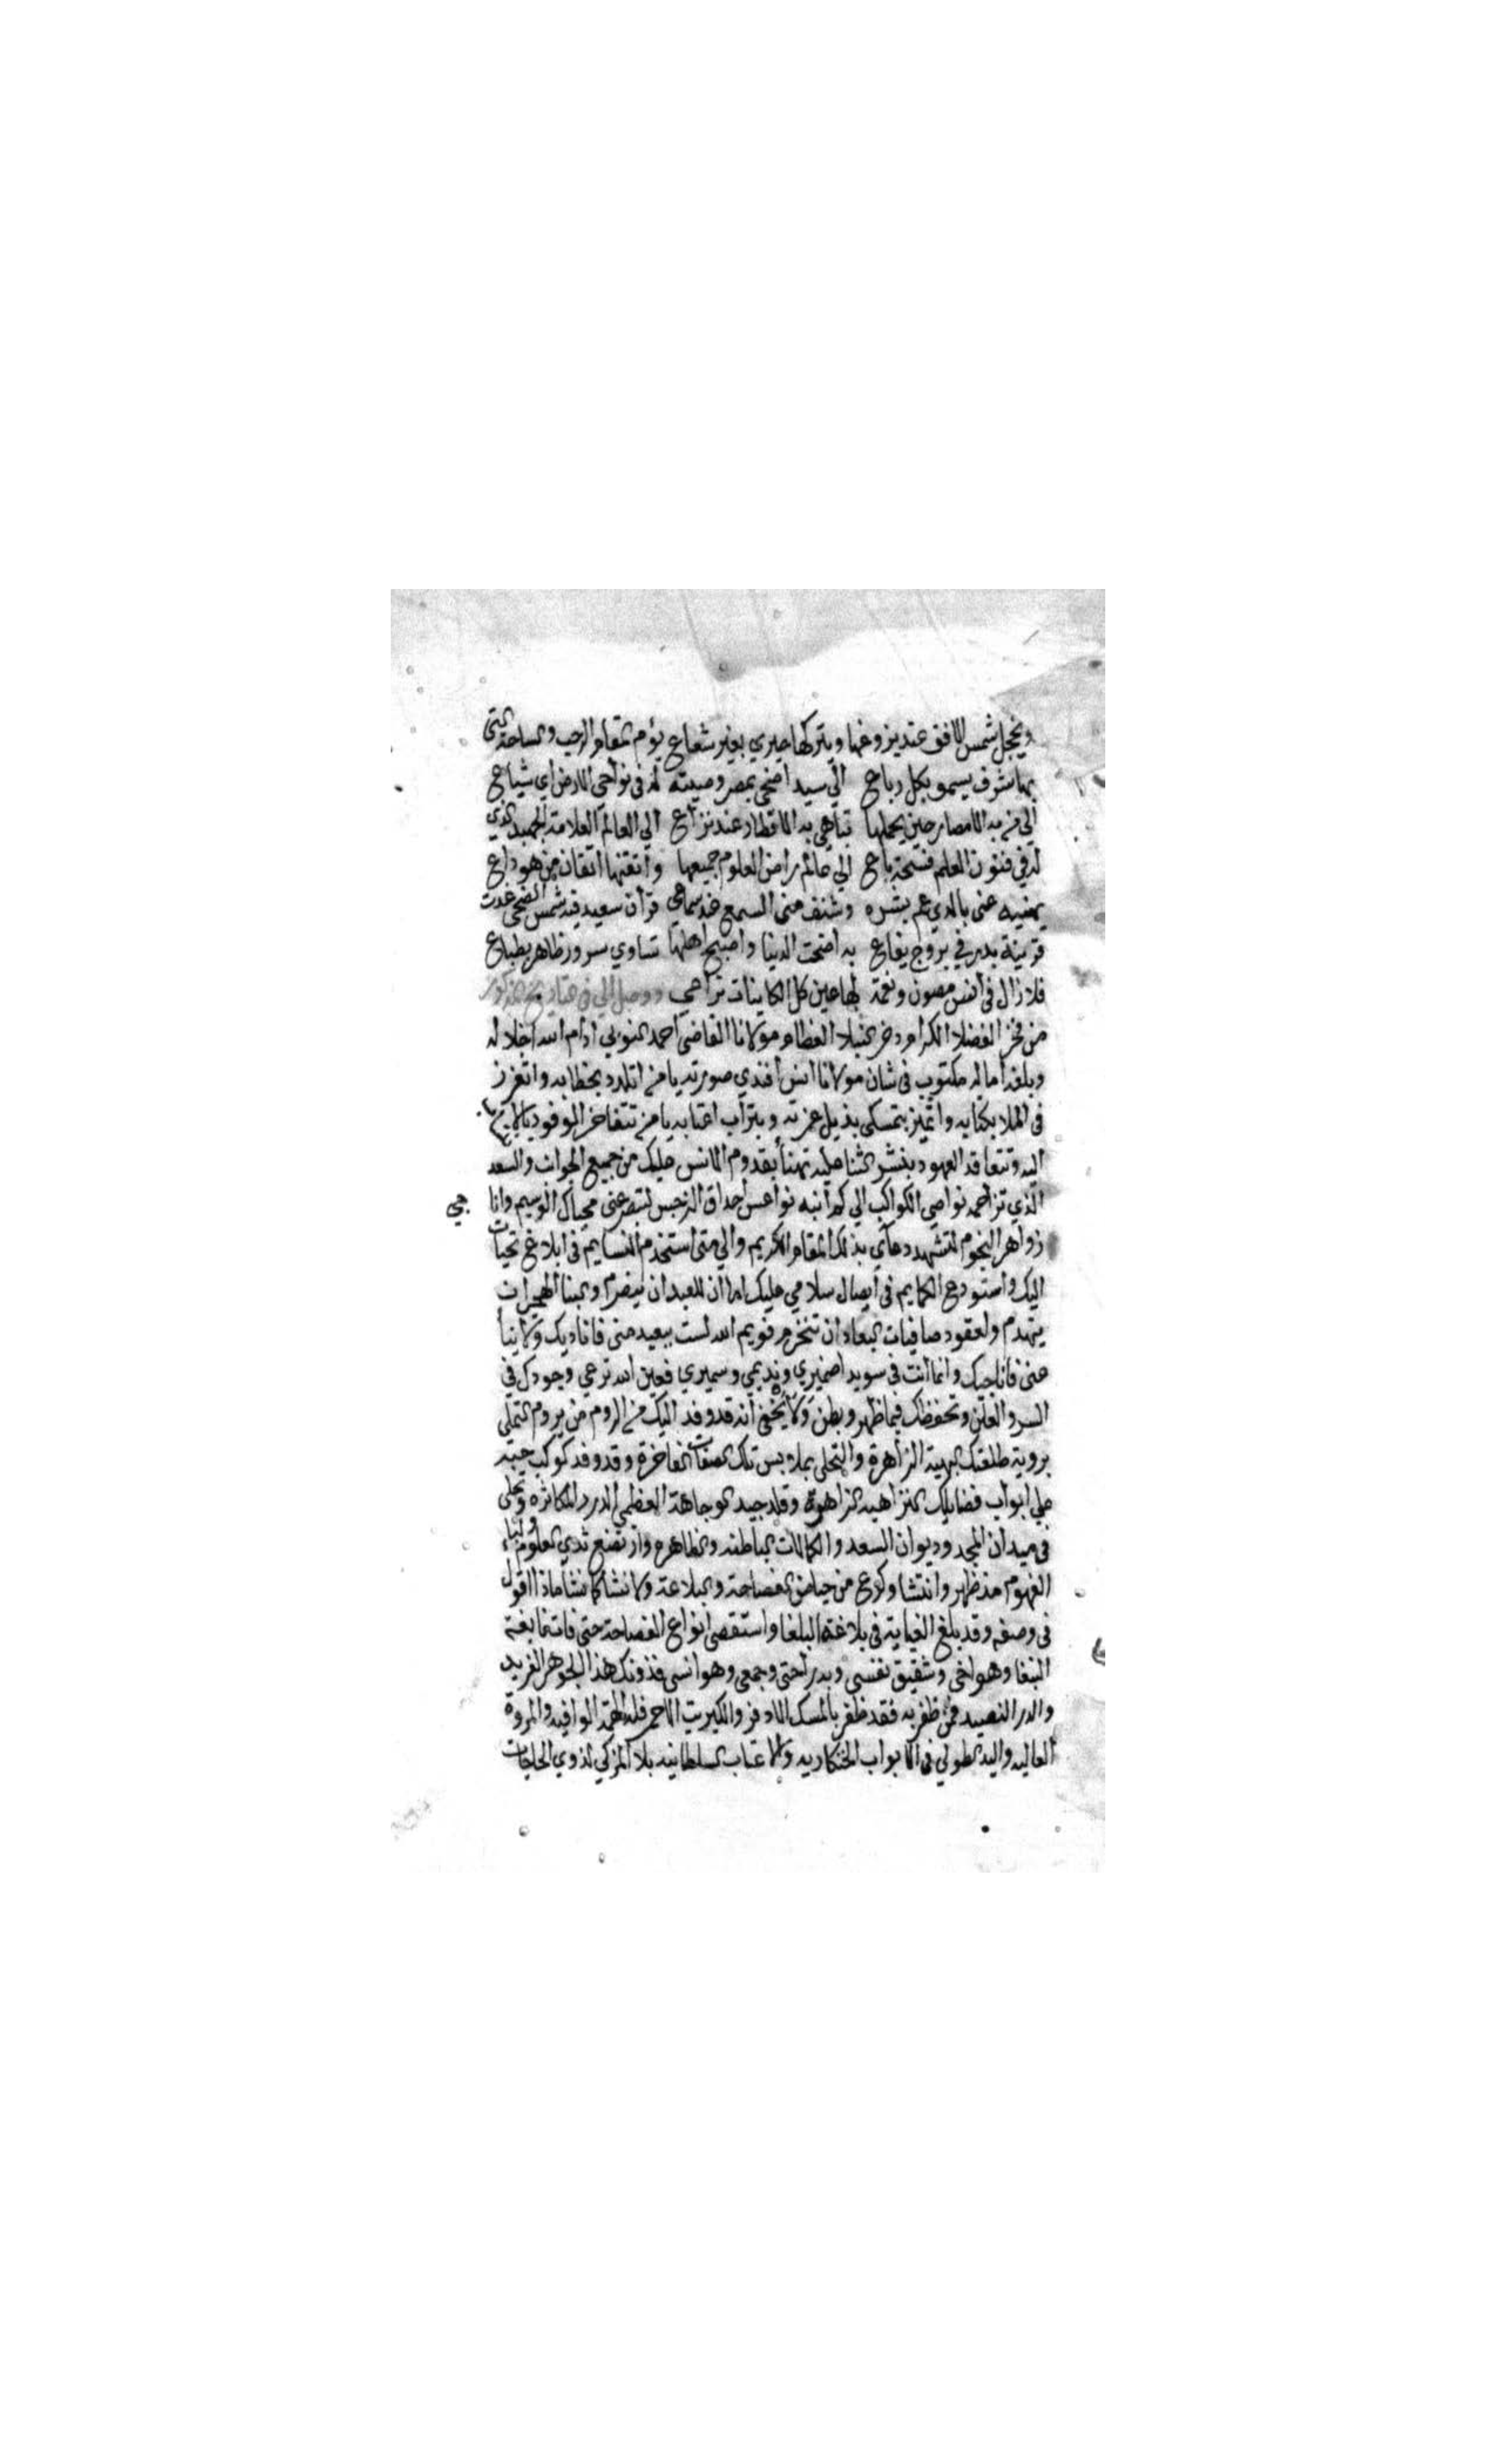 ويخجل شمس الافق عند بزوغها ويتركها حيري بغير شعاع يؤم المقام الرحب والساحة التي
بها شرف يسمو بكل رباع الي سيد اضحي بمصر وصيته له في نواحي الارض اي شياع
الي من به الامصار حين يحلها تباهي به الاقطار عند نزاع الي العالم العلامة الجهبذ الذي
له في فنون العلم فسحة باع الي عالم راض العلوم جميعها واتقنها اتقان من هو داع
يهنيه عني بالذي عم بشره وشنف مني السمع عند سماعي قرآن سعيد فيه شمس الضحي غدت
قرينة بدر في بروج يفاع به اضحت الدنيا واصبح اهلها تساوي سرور ظاهر بطباع
فلا زال في انس مصون ونعمة لها عين كل الكاينات تراعي ووصل الي في
من فخر الفضلا الكرام وذخر النبلا العظام مولانا القاضي احمد النوبي ادام الله اجلاله
وبلغه اماله مكتوب في شان مولانا انس افندي صورته يا من اتلذذ بخطابه واتعزز
في الملا بكتابه واتميز بتمسكي بذيل عزته وبتراب اعتابه يا من تتفاخر الوفود
اليه وتتعاقد العهود بنشر الثنا عليه تهنأ بقدوم الانس عليك من جميع الجهات والسعد
الذي تزاحمه نواصي الكواكب الي كم انبه نواعس احداق النرجس لتبصر عني محياك الوسيم وانا
جي
زواهر النجوم لتشهد دعاي بذلك المقام الكريم والي متي استخدم النسايم في ابلاغ تحيات
اليك واستودع الكمايم في ايصال سلامي عليك اما ان للبعد ان ينصرم ولبنا الهجران
ينهدم ولعقود صافيات البعاد ان تنخرم فويم الله لست ببعيد مني فاناديك ولا ينأ
عني فاناجيك وانما انت في سويدا ضميري ونديمي وسميري فعين الله ترعي وجودك في
السر والعلن وتحفظك فيما ظهر وبطن ولا يخفي انه قد وفد اليك من الروم من يروم التملي
بروية طلعتك البهية الزاهرة والتحلي بملابس تلك الصفات الفاخرة وقد وفد كوكب
علي ابواب فضايلك النزاهية الزاهرة وقلد جيد الوجاهة العظمي الدرر المكاثره وتجلي
في ميدان المجد وديوان السعد والكمالات الباطنه والظاهره وارتضع ثدي العلوم ولباء
الفهوم مذ ظهر وانتشا وكرع من حياض الفصاحة والبلاغة ولا نشا كما نشا ماذا اقول
في وصفه وقد بلغ الغاية في بلاغة البلغا واستقصي انواع الفصاحة حتي فاته نابغة
النبغا وهو اخي وشقيق نفسي وبدر احتي وجمعي وهو انسي فدونك هذا الجوهر الفريد
والدر النضيد فمن ظفر به فقد ظفر بالمسك الاذفر والكبريت الاحمر فله الهمة الوافيه والمروة
العاليه واليد الطولي في الابواب الخنكاريه والاعتاب السلطانيه بلا المزكي لذوي الحاجات